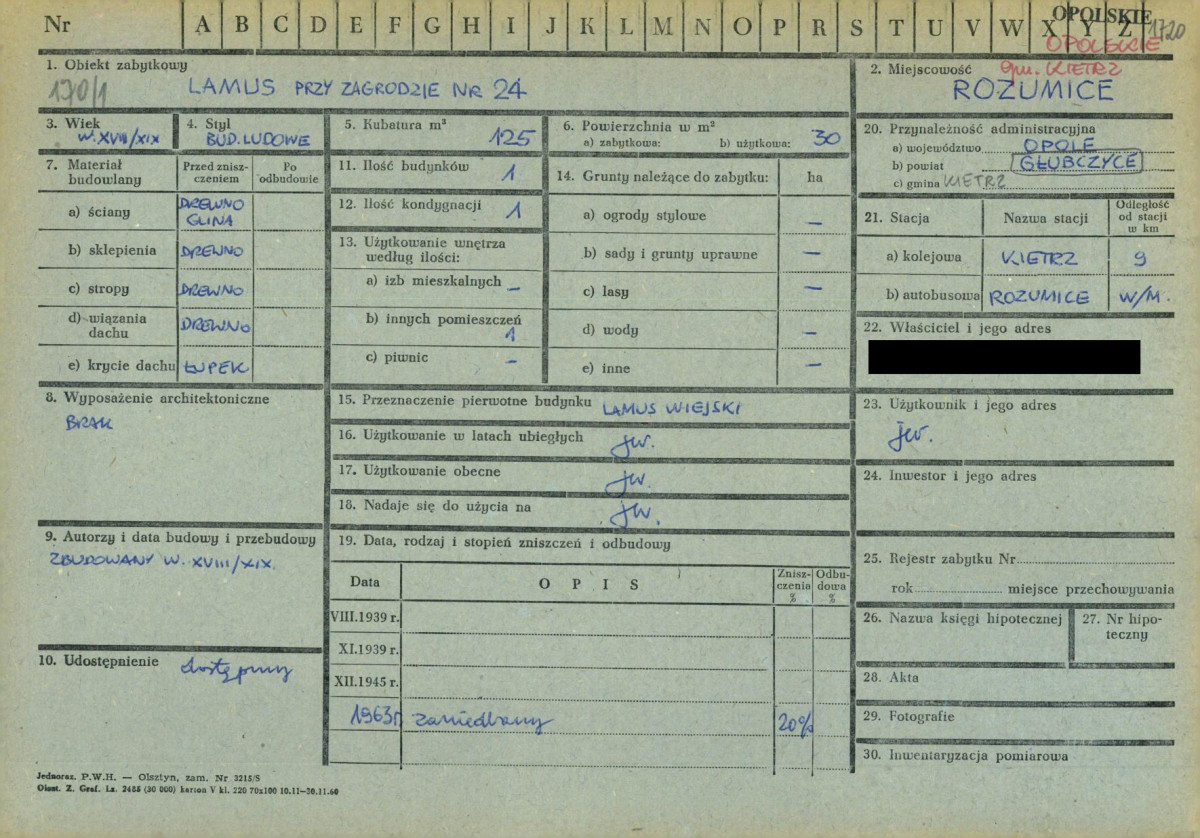 Nr A B C D E F G H I J K L M N O P R S T U V W X Y Z
OPOLSKIE 1720
OPOLSKIE
gm. KIETRZ
1. Obiekt zabytkowy
170/1 LAMUS PRZY ZAGRODZIE NR 24
2. Miejscowość
ROZUMICE
3. Wiek
W. XVIII/XIX
4. Styl
BUD. LUDOWE
5. Kubatura m³
125
6. Powierzchnia w m²
a) zabytkowa: b) użytkowa: 30
7. Materiał budowlany
Przed zniszczeniem
Po odbudowie
a) ściany DREWNO
GLINA
b) sklepienia DREWNO
c) stropy DREWNO
d) wiązania
dachu DREWNO
e) krycie dachu ŁUPEK
8. Wyposażenie architektoniczne
BRAK
9. Autorzy i data budowy i przebudowy
ZBUDOWANY W. XVIII/XIX.
10. Udostępnienie dostępny
11. Ilość budynków 1
12. Ilość kondygnacji 1
13. Użytkowanie wnętrza
według ilości:
a) izb mieszkalnych –
b) innych pomieszczeń
1
c) piwnic –
14. Grunty należące do zabytku: ha
a) ogrody stylowe –
b) sady i grunty uprawne –
c) lasy –
d) wody –
e) inne –
15. Przeznaczenie pierwotne budynku LAMUS WIEJSKI
16. Użytkowanie w latach ubiegłych jw.
17. Użytkowanie obecne jw.
18. Nadaje się do użycia na jw.
19. Data, rodzaj i stopień zniszczeń i odbudowy
Data OPIS Zniszczenia % Odbudowa %
VIII.1939 r.
XI.1939 r.
XII.1945 r.
1963r zaniedbany 20%
20. Przynależność administracyjna
a) województwo OPOLE
b) powiat GŁUBCZYCE
c) gmina KIETRZ
21. Stacja Nazwa stacji Odległość
od stacji
w km
a) kolejowa KIETRZ 9
b) autobusowa ROZUMICE W/M.
22. Właściciel i jego adres
23. Użytkownik i jego adres
jw.
24. Inwestor i jego adres
25. Rejestr zabytku Nr
rok miejsce przechowywania
26. Nazwa księgi hipotecznej
27. Nr hipoteczny
28. Akta
29. Fotografie
30. Inwentaryzacja pomiarowa
Jednoraz. P.W.H. — Olsztyn, zam. Nr 3215/S
Olszt. Z. Graf. Lz. 2455 (30 000) karton V kl. 220 70x100 10.11—30.11.60